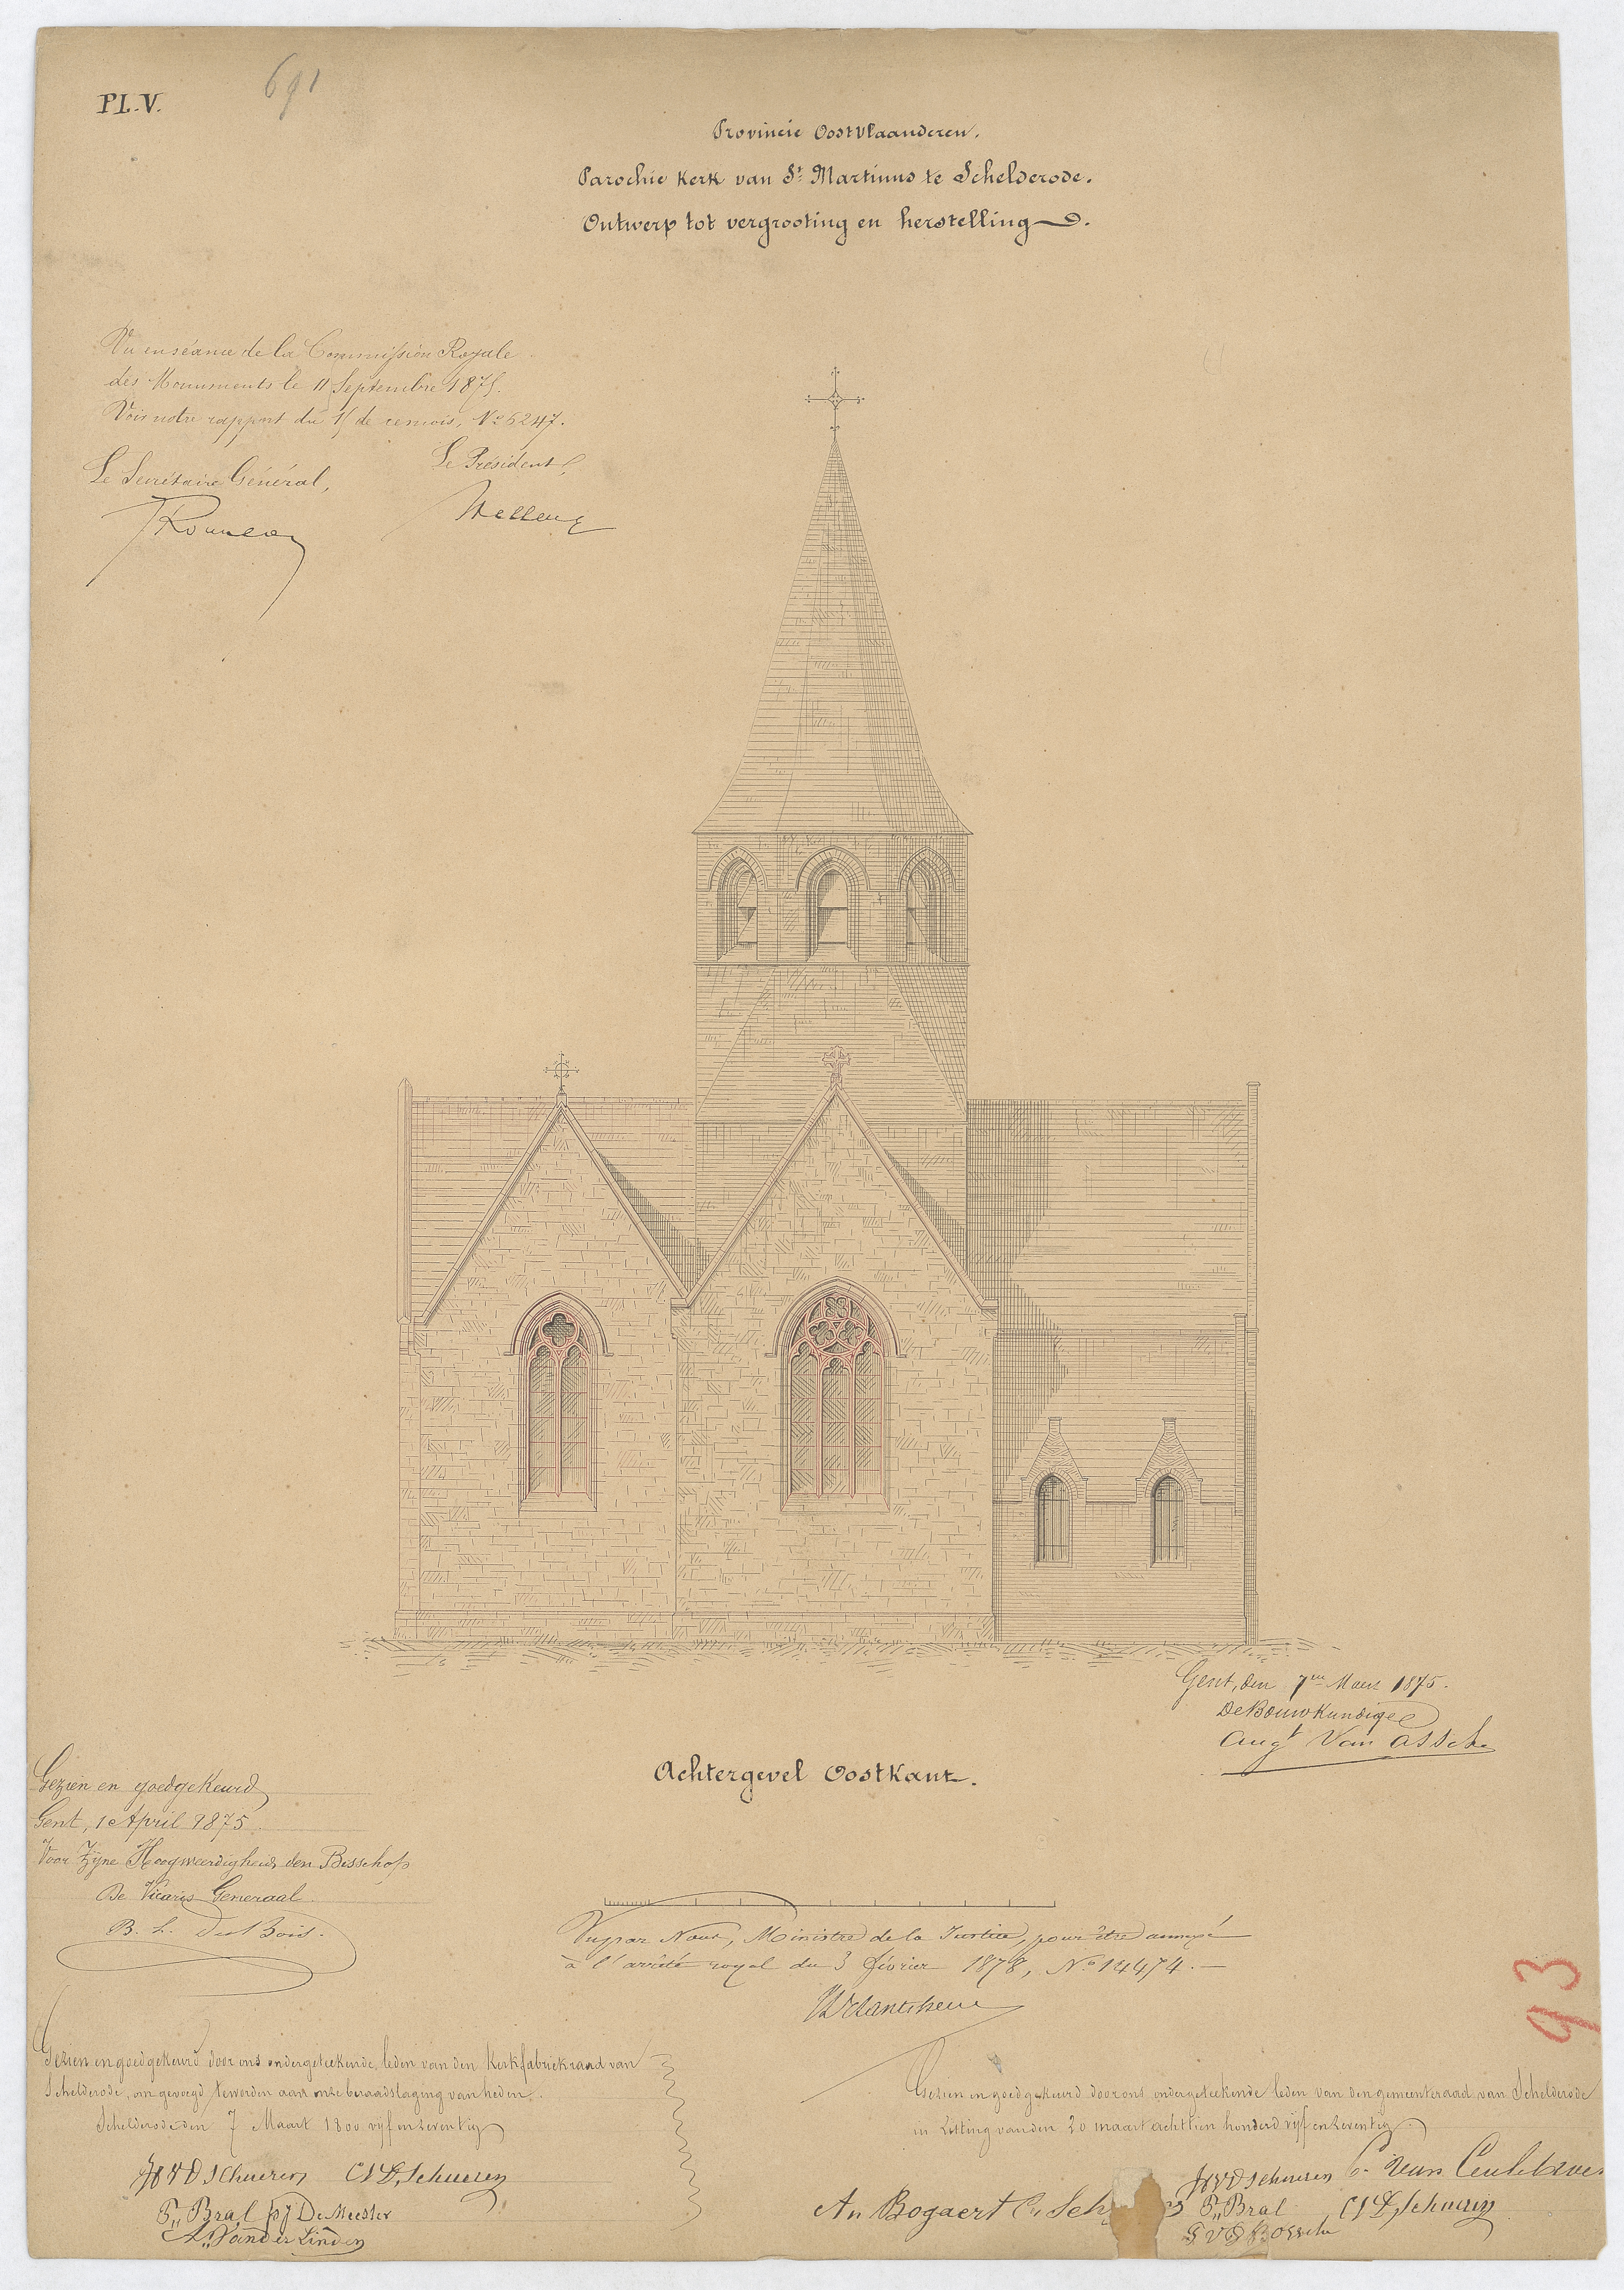 Pl. V.
691
Provincie Oostvlaanderen.
Parochie Kerk van St. Martinus te Schelderode.
Ontwerp tot vergrooting en herstelling.
Vu en séance de la Commission Royale
des Monuments le 11 Septembre 1875.
Voir notre rapport du 15 de ce mois, No 5247.
Le Président,
Le Secrétaire Général,
Wellens
JRousseau
Gent, den 7en Maart 1875.
De Bouwkundige
Augt Van Assche
Achtergevel Oostkant.
Gezien en goedgekeurd
Gent, 1 April 1875.
Voor Zijne Hoogweerdigheid den Bisschop
De Vicaris Generaal.
B. L. Du Bois.
Vu par Nous, Ministre de la Justice, pour être annexé
à l'arrêté royal du 3 février 1878, No 14474.
93
Gezien en goedgekeurd door ons ondergeteekende, leden van den Kerkfabriekraad van
Schelderode, om gevoegd te worden aan onze beraadslaging van heden.
Schelderode den 7 Maart 1800 vijf en zeventig
Gezien en goedgekeurd door ons ondergeteekende leden van den gemeenteraad van Schelderode
in zitting van den 20 maart achttien honderd vijf en zeventig
JVD Schueren CVD Schueren
F. Bral pj De Meester
A. Vander Linden
An Bogaert C. Sch
JVD Schueren C. Van
F. Bral CVD Schueren
VD Bossche